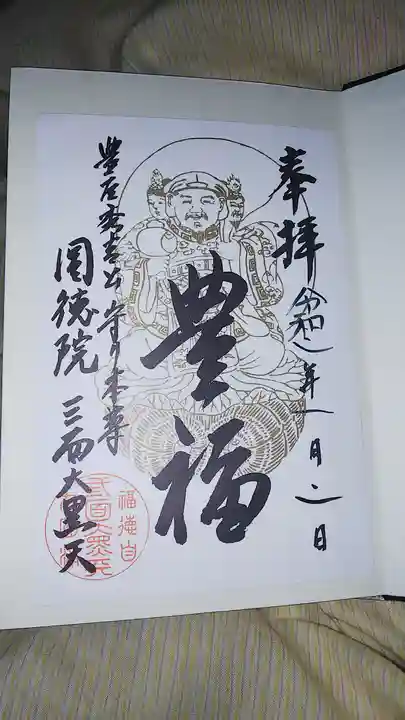 奉拝
令和 年一月 日
豊福
豊臣秀吉公守り本尊
圓徳院 三面大黒天
福徳自